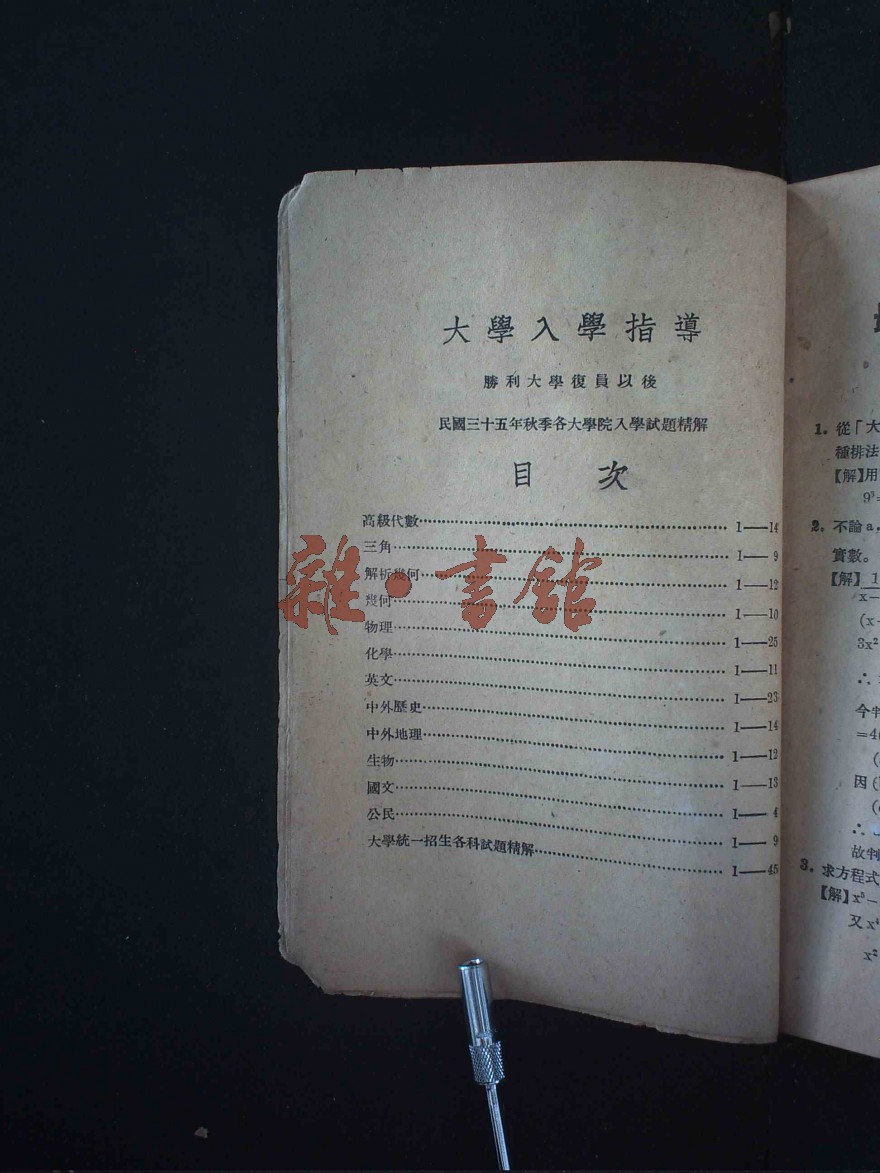 大學入學指導
勝利大學復員以後
民國三十五年秋季各大學院入學試題精解
目 次
高級代數………1—14
三角………1—9
解析幾何………1—12
幾何………1—10
物理………1—25
化學………1—11
英文………1—23
中外歷史………1—14
中外地理………1—12
生物………1—13
國文………1—4
公民………1—9
大學統一招生各科試題精解………1—45
雜·書館
1. 從「大
種排法
【解】用
9³=
2. 不論a,
實數。
【解】1
x—
(x-
3x²
∴
今判
=4(
(
因(
(
∴
故判
3. 求方程式
【解】x⁵—
又x⁴
x²